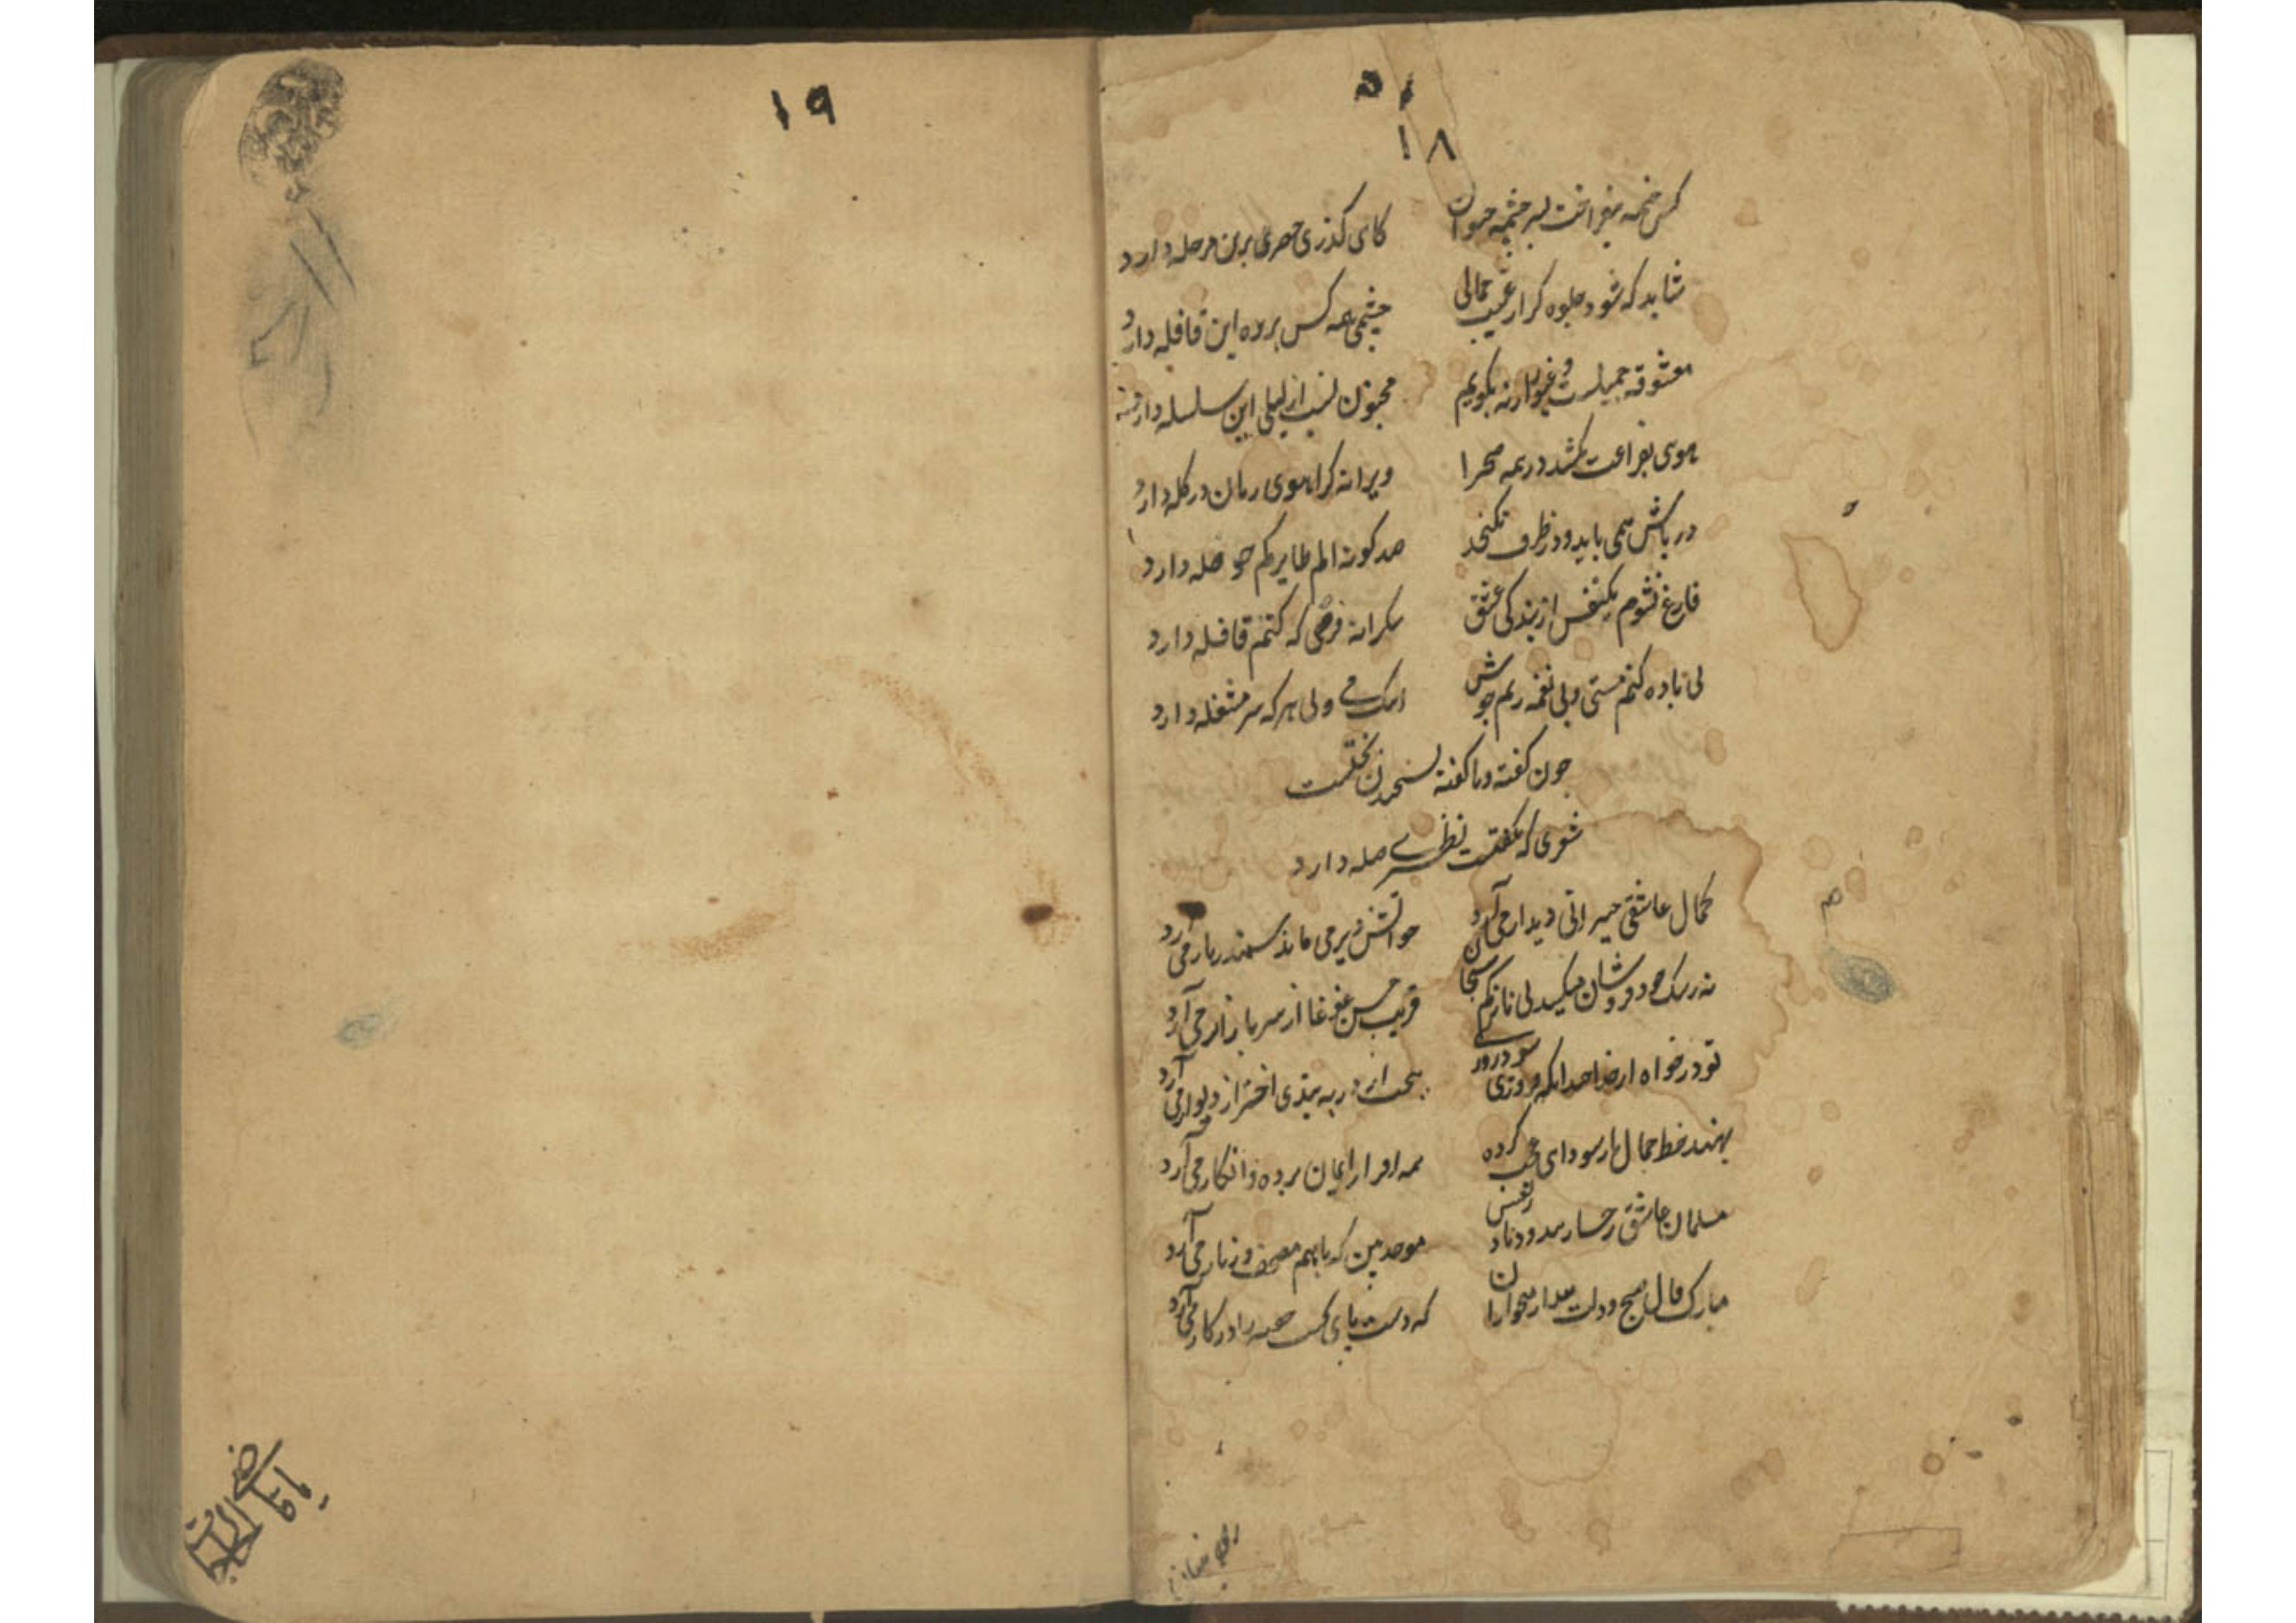 ۱۸
کس خیمه بفراغت بسر چشمه حیوان
کای گذری خضری برین مرحله دارد
شاید که شود جلوه گر از غیب جمالی
چشمی همه کس بر ره این قافله دارد
معشوقه جمیلست و غیورانه بگویم
مجنون نسب از لیلی این سلسله دارد
هوی بفراغت نکشد در همه صحرا
ویرانه گر آهوی رمان در گله دارد
در یاش همی باید و در ظرف نگنجد
صد گونه الم طایر کم حوصله دارد
فارغ نشوم یکنفس از بندگی عشق
شکرانه فرضی که کنم نافله دارد
بی باده کنم مستی و بی نغمه زنم جوش
می ولی هر که سر مشغله دارد
چون گفته و ناگفته نسنجیدن
شعری که نگفتست نظیری صله دارد
کمال عاشقی حیرانی دیدار می آرد
چو آتش دیر می ماند سمندر بار می آرد
نه رشک خود فروشان میکشد نی ناز
فریب حسن غوغا از سر بازار می آرد
تو در خواه از خدا
از در به بندی اختر از دیوار می آرد
بهند خط جمال سودای عجب کرده
همه اقرار ایمان برده و انکار می آرد
مسلمان عاشق رخسار
موحد بین که باهم مصحف و زنار می آرد
مبارک فال صبح و دولت بیدار
که دست پای را در کار می آرد
۱۹
یا قاضی الحاجات